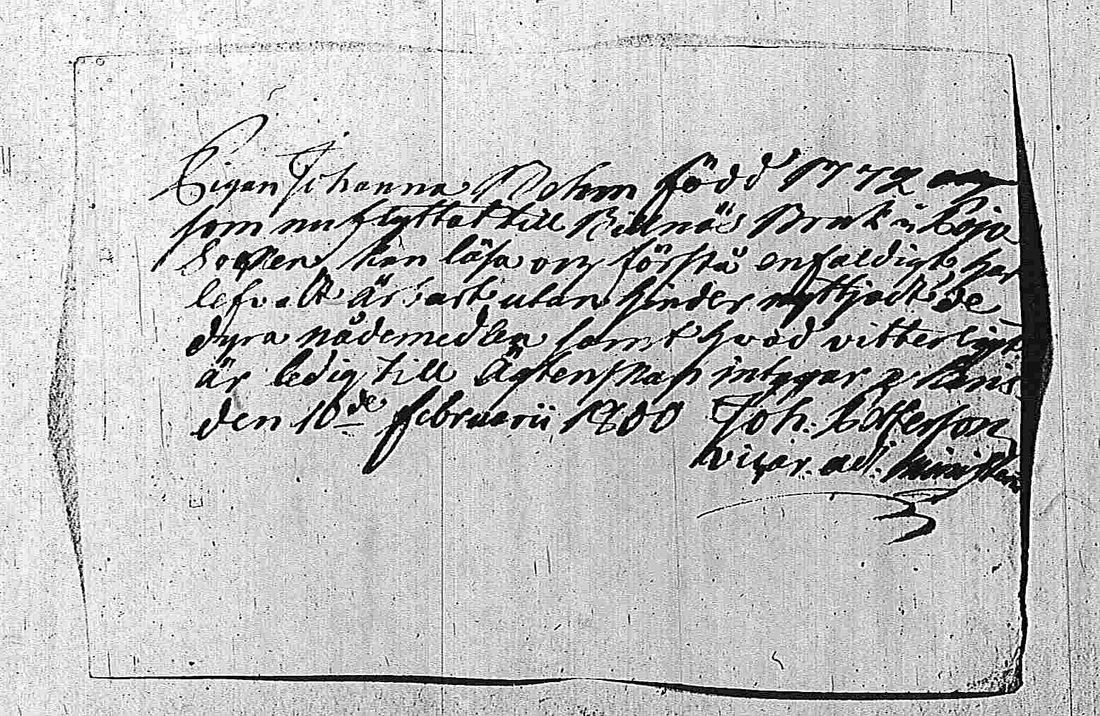 Pigan Johanna Bohm född 1772
som nu flyttat till Billnäs Bruk i Pojo
Socken, kan läsa och förstå enfaldigt har
lefvatt ärbart, utan hinder nyttjadt de
dyra nådemedlen samt hvad vitterligt
är ledig till Ägtenskap intygar
den 10de Februarii 1800 Joh.
vicar. ad. minist